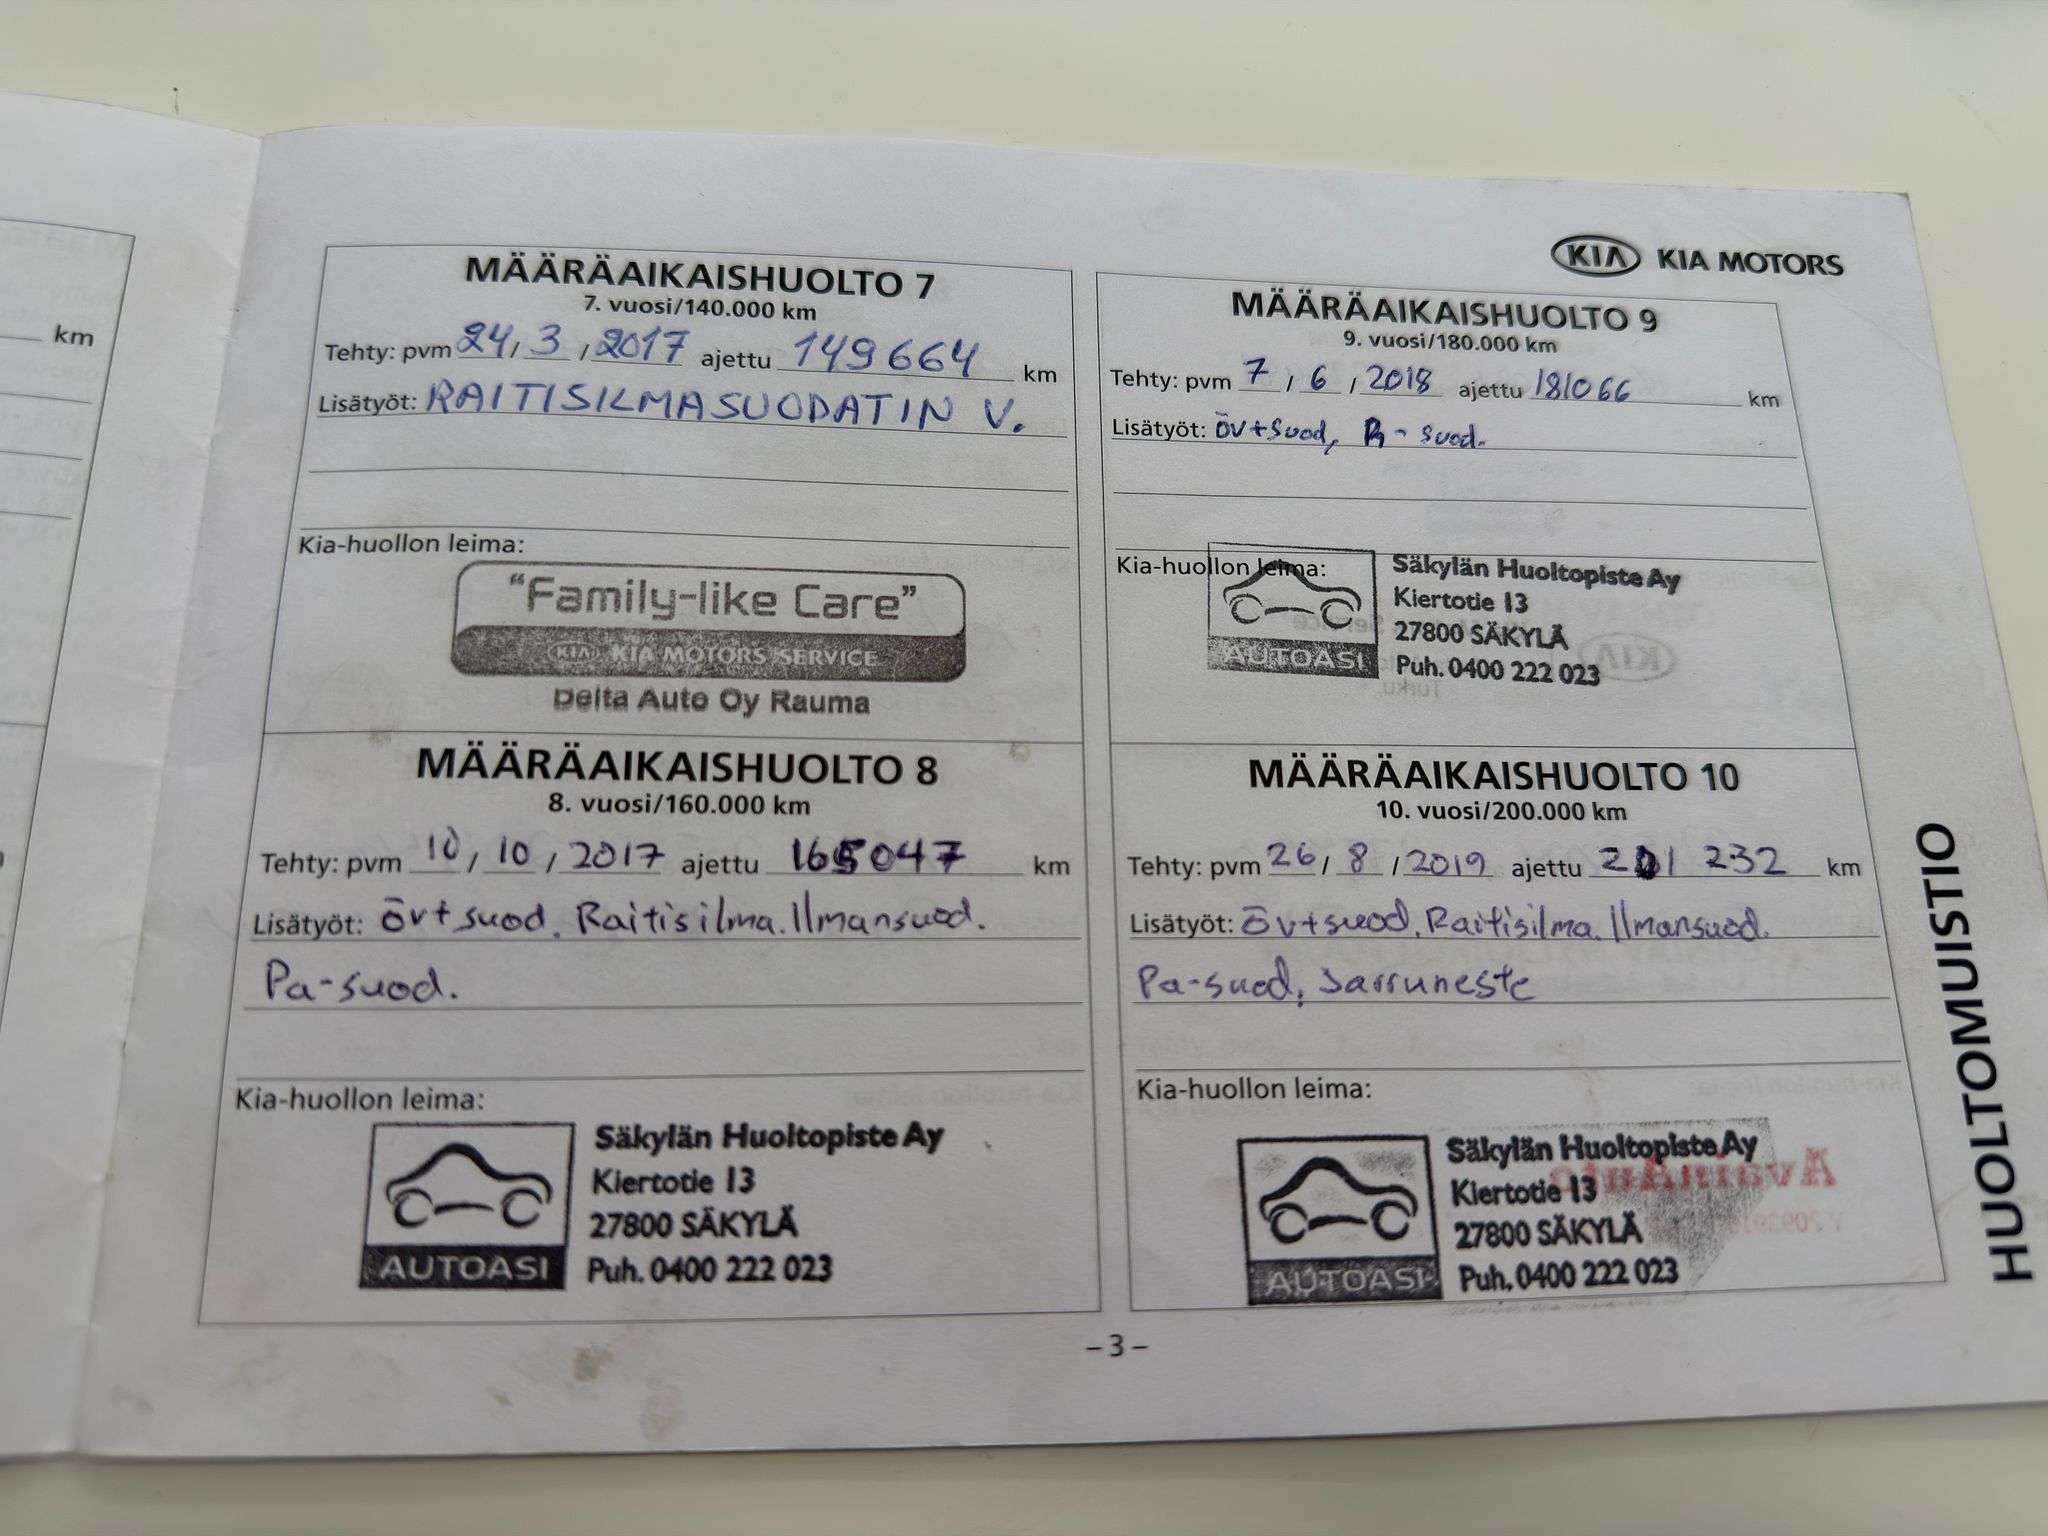 km
KIA KIA MOTORS
MÄÄRÄAIKAISHUOLTO 7
7. vuosi/140.000 km
Tehty: pvm 24/3/2017 ajettu 149664 km
Lisätyöt: RAITISILMASUODATIN V.
Kia-huollon leima:
"Family-like Care"
KIA KIA MOTORS SERVICE
Delta Auto Oy Rauma
MÄÄRÄAIKAISHUOLTO 8
8. vuosi/160.000 km
Tehty: pvm 10/10/2017 ajettu 165047 km
Lisätyöt: Öv+suod. Raitisilma. Ilmansuod.
Pa-suod.
Kia-huollon leima:
Säkylän Huoltopiste Ay
Kiertotie 13
27800 SÄKYLÄ
AUTOASI Puh. 0400 222 023
MÄÄRÄAIKAISHUOLTO 9
9. vuosi/180.000 km
Tehty: pvm 7/6/2018 ajettu 181066 km
Lisätyöt: Öv+suod, Pa-suod.
Kia-huollon leima:
Säkylän Huoltopiste Ay
Kiertotie 13
27800 SÄKYLÄ
AUTOASI Puh. 0400 222 023
MÄÄRÄAIKAISHUOLTO 10
10. vuosi/200.000 km
Tehty: pvm 26/8/2019 ajettu 201 232 km
Lisätyöt: Öv+suod. Raitisilma. Ilmansuod.
Pa-suod, Jarruneste
Kia-huollon leima:
Säkylän Huoltopiste Ay
Kiertotie 13
27800 SÄKYLÄ
AUTOASI Puh. 0400 222 023
HUOLTOMUISTIO
–3–